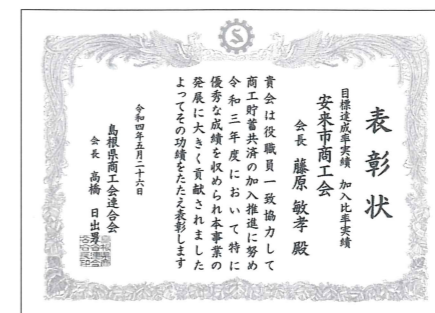 表彰状
目標達成率実績 加入比率実績
安来市商工会
会長 藤原 敏孝 殿
貴会は役職員一致協力して
商工貯蓄共済の加入推進に努め
令和三年度において特に
優秀な成績を収められ本事業の
発展に大きく貢献されました
よってその功績をたたえ表彰します
令和四年五月二十六日
島根県商工会連合会
会長 高橋 日出男